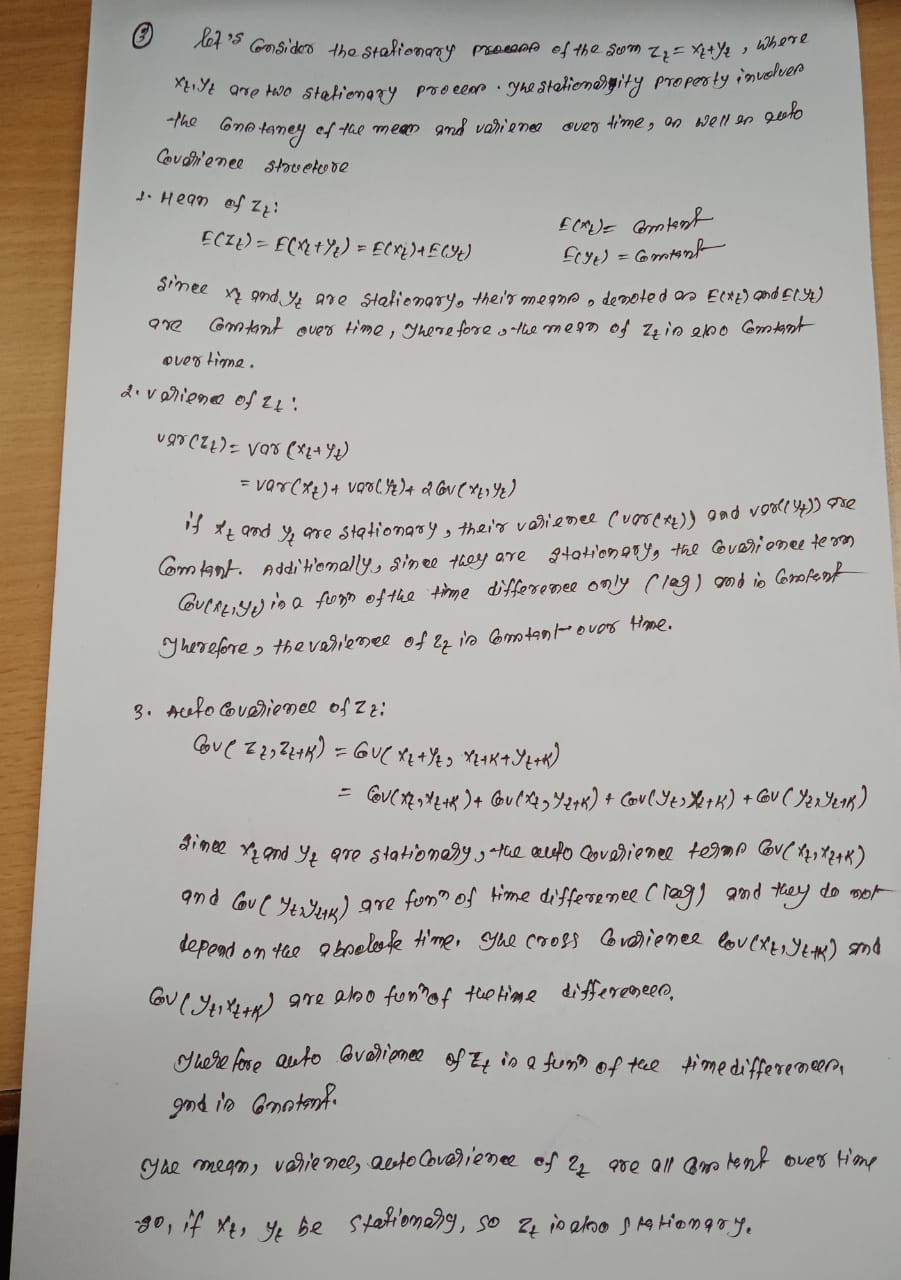 ③ let's Consider the stationary process of the som Zt = Xt+Yt , where
Xt, Yt are two stationary process . The stationarity property involves
the Constancy of the mean and varience over time, as well as auto
Covarience structure
1. Mean of Zt:
E(Zt) = E(Xt+Yt) = E(Xt)+E(Yt)
E(Xt)= Constant
E(Yt) = Constant
Since Xt and Yt are stationary, their means, denoted as E(Xt) and E(Yt)
are Constant over time, Therefore, the mean of Zt is also Constant
over time.
2. varience of Zt:
var(Zt) = var (Xt+Yt)
= var(Xt)+ var(Yt)+ 2Cov(Xt, Yt)
if Xt and Yt are stationary, their varience (var(Xt)) and var((Yt)) are
Constant. Additionally, since they are stationary, the Covarience term
Cov(Xt,Yt) is a funn of the time difference only (lag) and is Constant
Therefore, the varience of Zt is Constant over time.
3. Auto Covarience of Zt:
Cov( Zt, Zt+K) = Cov( Xt+Yt, Xt+K+Yt+K)
= Cov(Xt, Xt+K)+ Cov(Xt, Yt+K) + Cov(Yt, Xt+K) + Cov( Yt, Yt+K)
Since Xt and Yt are stationary, the auto Covarience terms Cov( Xt, Xt+K)
and Cov( Yt, Yt+K) are funn of time difference (lag) and they do not
depend on the absolute time. The cross Covarience Cov(Xt, Yt+K) and
Cov( Yt, Xt+K) are also funn of the time differences.
There fore auto Covarience of Zt is a funn of the time differences,
and is Constant.
The mean, varience, auto Covarience of Zt are all Constent over time
so, if Xt, Yt be stationary, so Zt is also stationary.